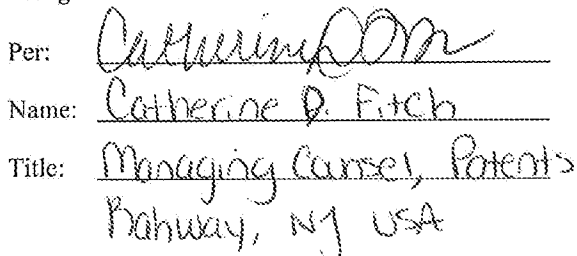 Per: Catherine D
Name: Catherine D. Fitch
Title: Managing Counsel, Patents
Rahway, NJ USA